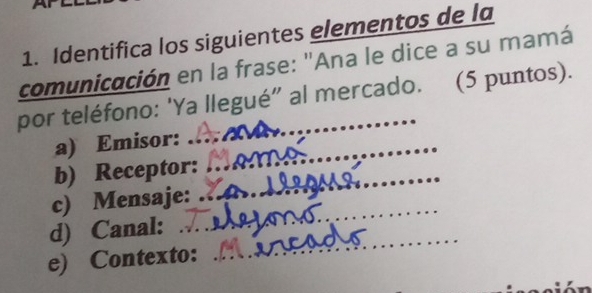 1. Identifica los siguientes elementos de la
comunicación en la frase: "Ana le dice a su mamá
por teléfono: 'Ya llegué" al mercado. (5 puntos).
a) Emisor: Ana
b) Receptor: Mamá
c) Mensaje: Ya llegué
d) Canal: Telefono
e) Contexto: Mercado